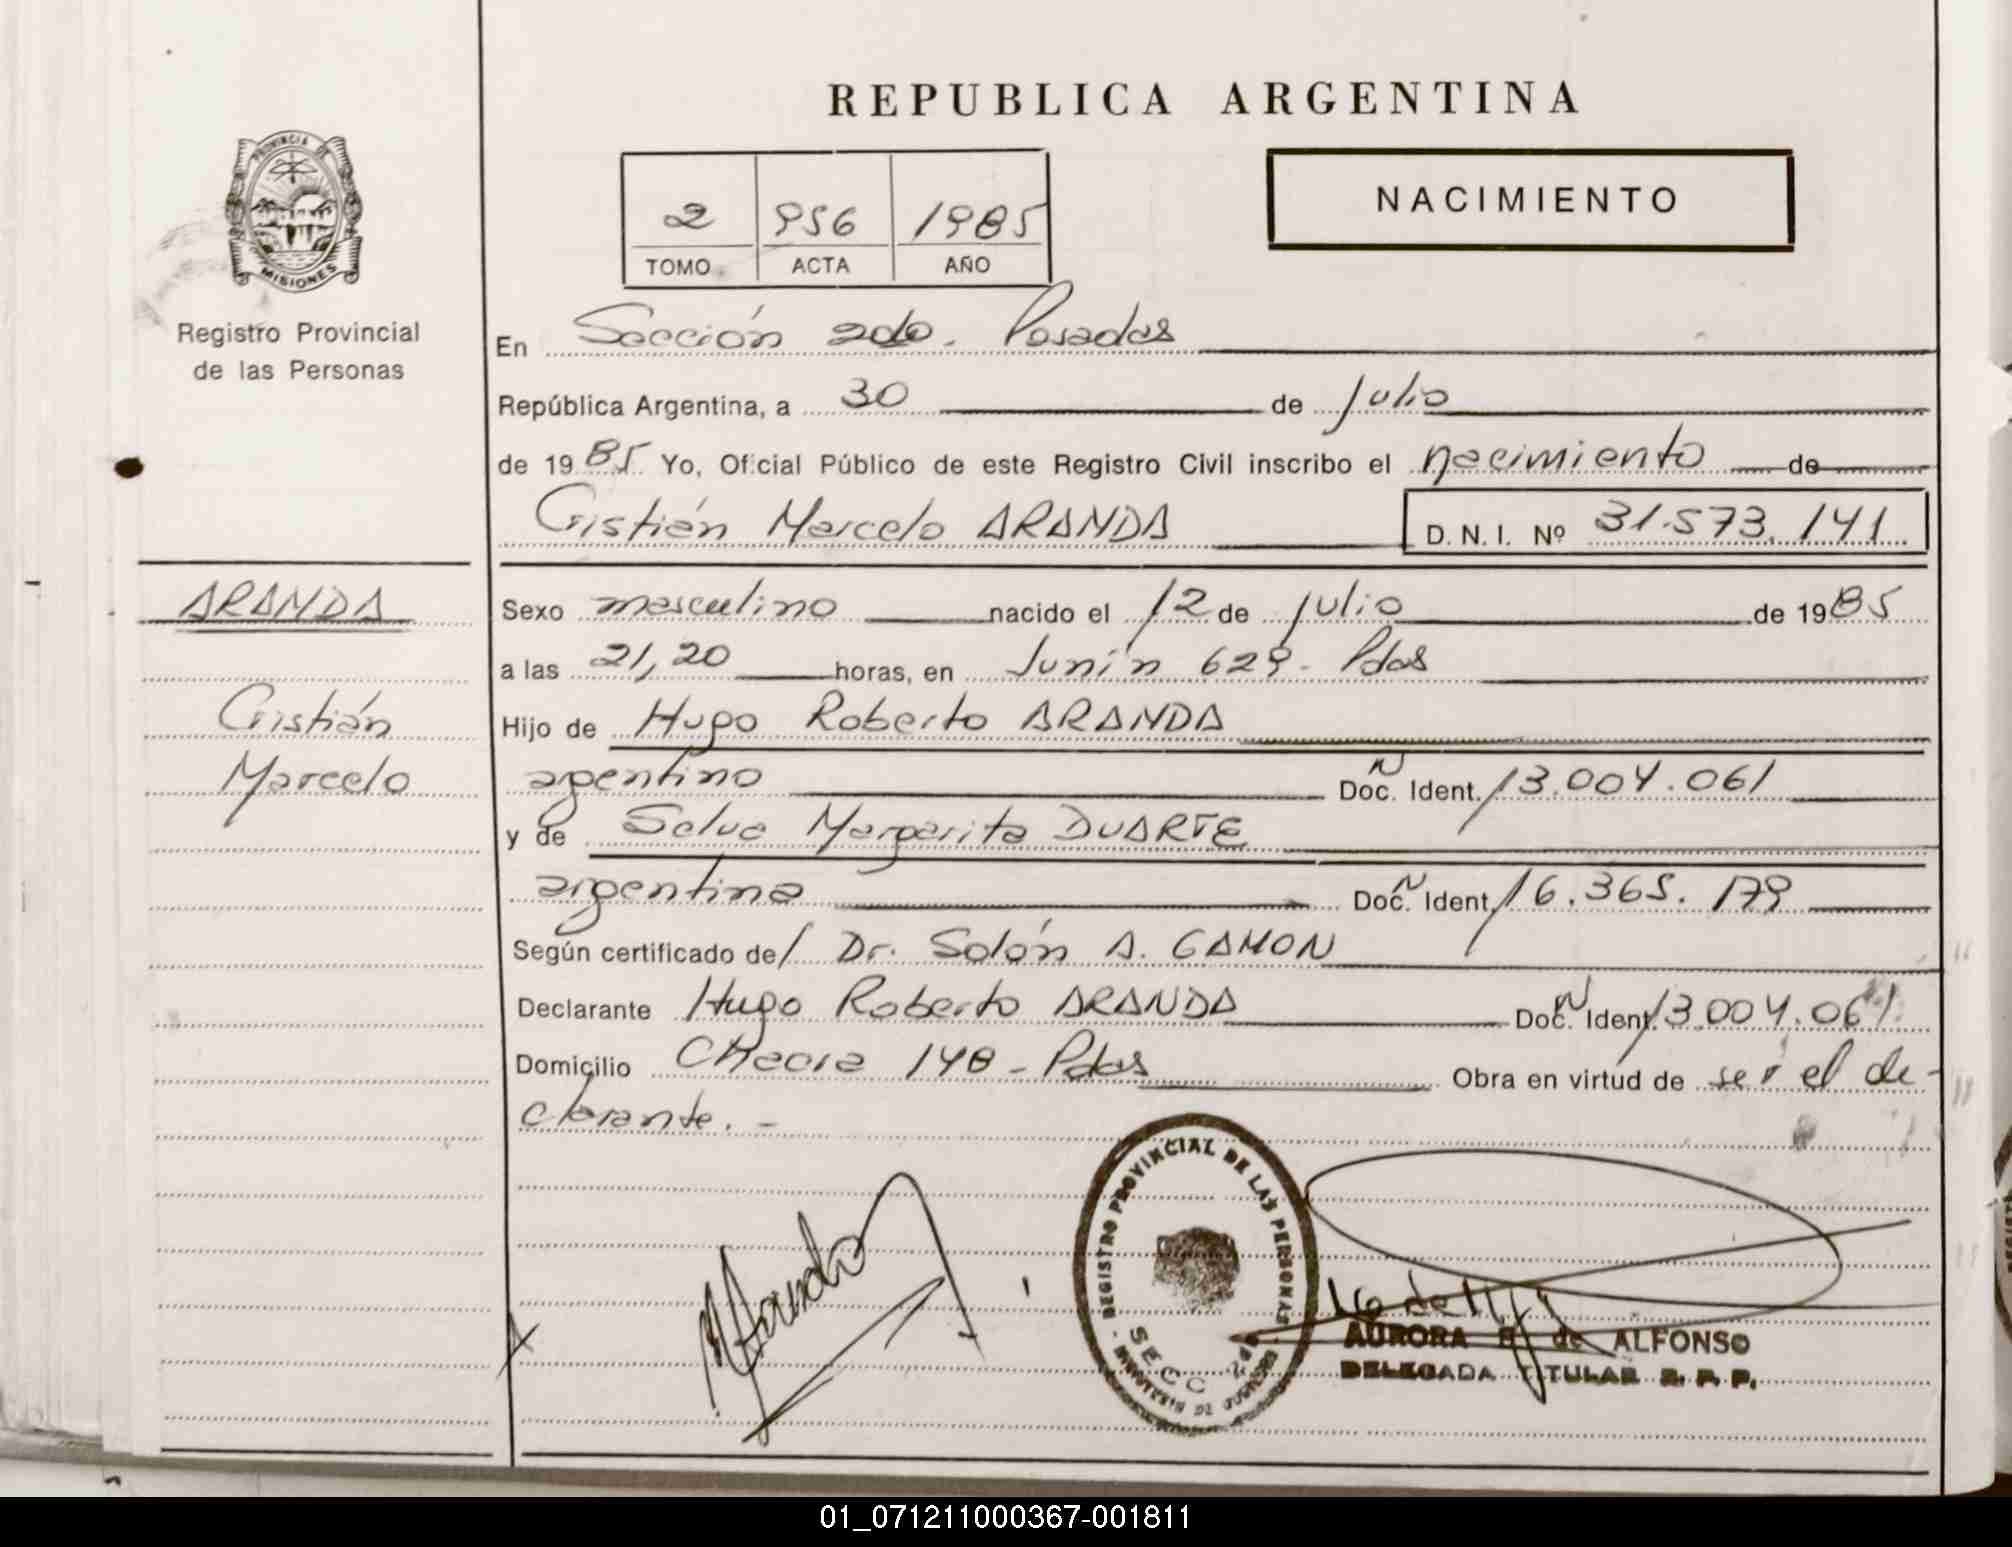 REPUBLICA ARGENTINA
PROVINCIA DE
MISIONES
Registro Provincial
de las Personas
NACIMIENTO
2 956 1985
TOMO ACTA AÑO
En Sección 2da. Posadas
República Argentina, a 30 de Julio
de 1985 Yo, Oficial Público de este Registro Civil inscribo el nacimiento de
Cristián Marcelo ARANDA D.N.I. Nº 31.573.141
ARANDA
Cristián
Marcelo
Sexo masculino nacido el 12 de julio de 1985
a las 21,20 horas, en Junín 629- Pdas
Hijo de Hugo Roberto ARANDA
argentino Doc. N Ident. 13.004.061
y de Selva Margarita DUARTE
argentina Doc. N Ident. 16.365.179
Según certificado de/ Dr. Solón A. GAMON
Declarante Hugo Roberto ARANDA Doc. N Ident. 13.004.061
Domicilio Chacra 148 - Pdas Obra en virtud de ser el de-
clarante.-
REGISTRO PROVINCIAL DE LAS PERSONAS
SECC 2da
AURORA B de ALFONSO
DELEGADA TITULAR R. P. P.
01_071211000367-001811